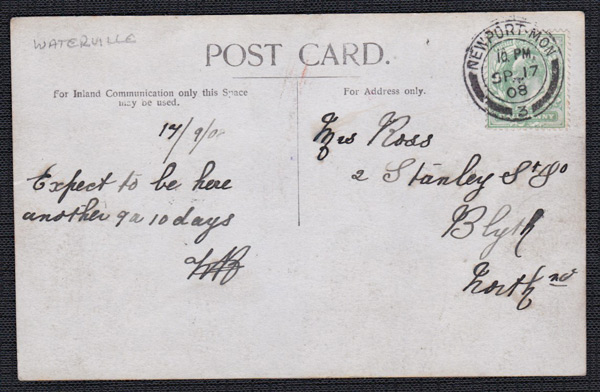 WATERVILLE
POST CARD.
For Inland Communication only this Space
may be used.
For Address only.
NEWPORT-MON
10. PM
SP 17
08
3
17/9/08
Expect to be here
another 9 a 10 days
Mrs Ross
2 Stanley St So
Blyth
North nd